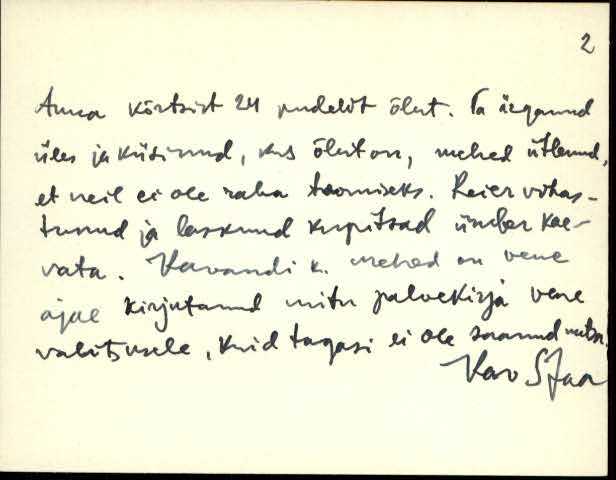 2
Anna kõrtsist 24 pudelit õlut. Ta ärganud
üles ja küsinud, kus õlut on, mehed ütlenud,
et neil ei ole raha toomiseks. Reier vihas-
tunud ja lasknud kupitsad ümber kae-
vata. Kavandi k. mehed on vene
ajal kirjutanud mitu palvekirja vene
valitsusele, kuid tagasi ei ole saanud